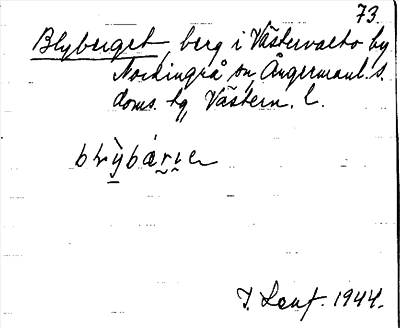 73.
Blyberget, berg i Västervaeto by
Nordingrå sn, Ångermanl. s.
doms. tg, Västern. l.
J. Lenf. 1944.